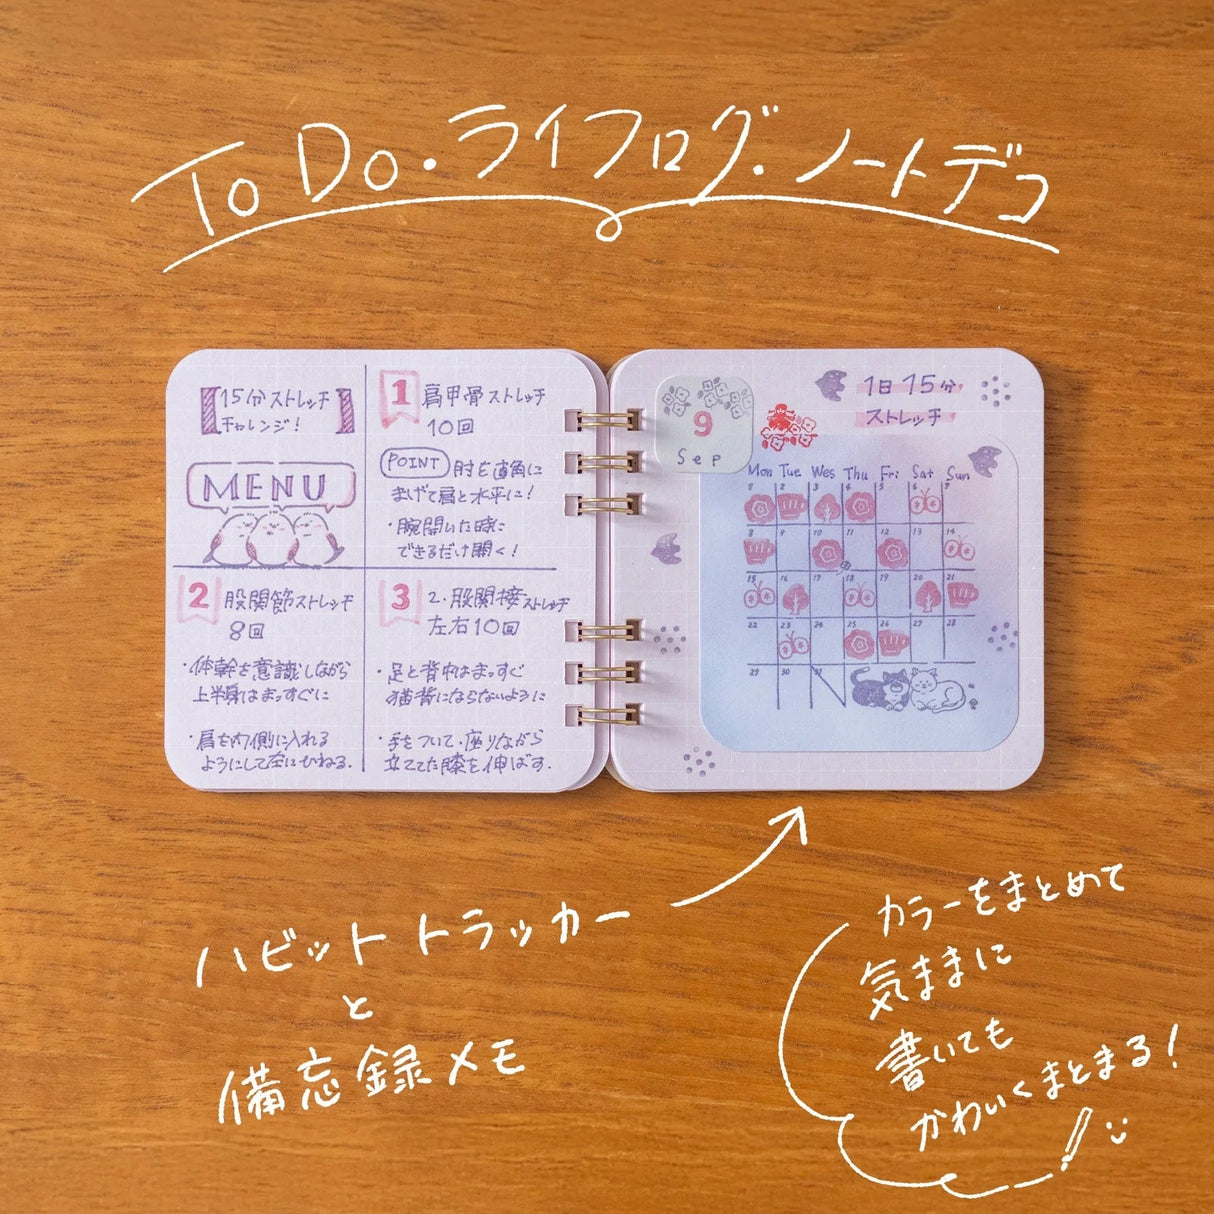 To Do・ライフログ・ノートデコ
【15分ストレッチ
チャレンジ!】
MENU
1 肩甲骨ストレッチ
10回
POINT 肘を直角に
まげて肩と水平に!
・腕開いた時に
できるだけ開く!
2 股関節ストレッチ
8回
・体幹を意識しながら
上半身はまっすぐに
・肩を内側に入れる
ようにして左にひねる.
3 2.股関接ストレッチ
左右10回
・足と背中はまっすぐ
猫背にならないように
・手をついて、座りながら
立ててた膝を伸ばす.
9
Sep
1日15分
ストレッチ
Mon Tue Wes Thu Fri Sat Sun
1 2 3 4 5 6 7
8 9 10 11 12 13 14
15 16 17 18 19 20 21
22 23 24 25 26 27 28
29 30 31
ハビットトラッカー
と
備忘録メモ
カラーをまとめて
気ままに
書いても
かわいくまとまる!